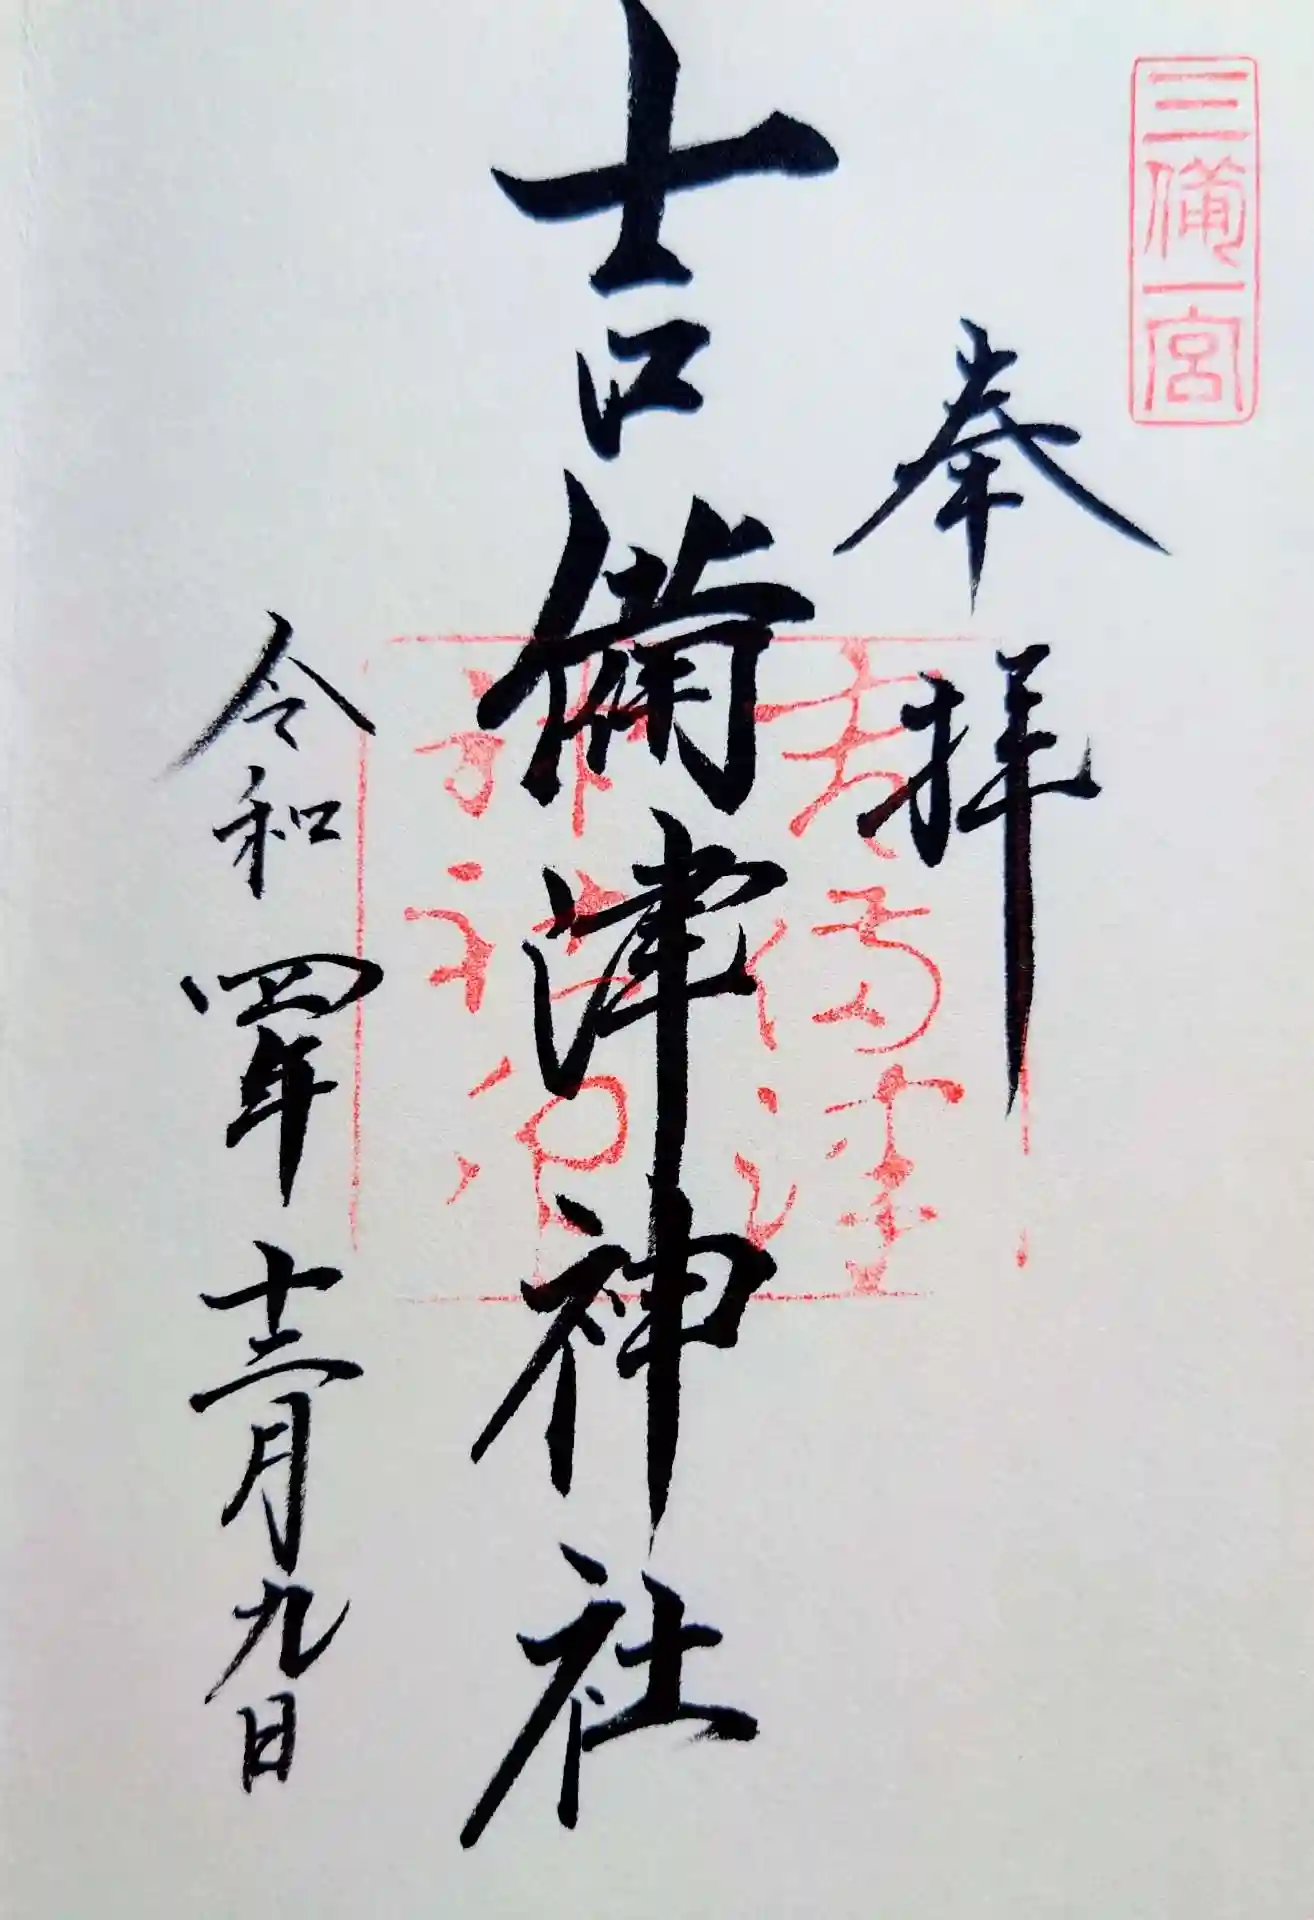 三備一宮
奉拝
吉備津神社
吉備津
令和四年十二月九日